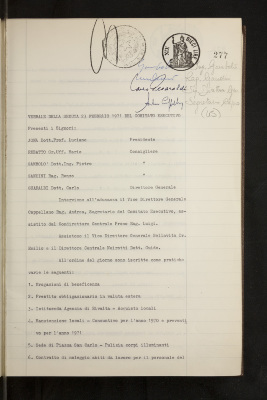 277
VERBALE DELLA SEDUTA 11 FEBBRAIO 1971 DEL COMITATO ESECUTIVO
Presenti i Signori:
JONA Dott.Prof. Luciano Presidente
DEZATTO Gr.Uff. Mario Consigliere
Dott.Ing. Pietro "
Rag. Renzo "
Dott. Carlo Direttore Generale
Interviene all'adunanza il Vice Direttore Generale
Cappellano Rag. Andrea, Segretario del Comitato Esecutivo, as-
sistito dal Condirettore Centrale Prone Rag. Luigi.
Assistono il Vice Direttore Generale
e il Direttore Centrale Dott. Guido.
All'ordine del giorno sono iscritte come pratiche
varie le seguenti:
1. Erogazioni di beneficenza
2. Prestito obbligazionario in valuta estera
3. Agenzia di Rivalta - acquisto locali
4. Manutenzione locali - Consuntivo per l'anno 1970 e preventi
vo per l'anno 1971
5. Sede di Piazza San Carlo - Pulizia corpi illuminanti
6. Contratto di noleggio abiti da lavoro per il personale del